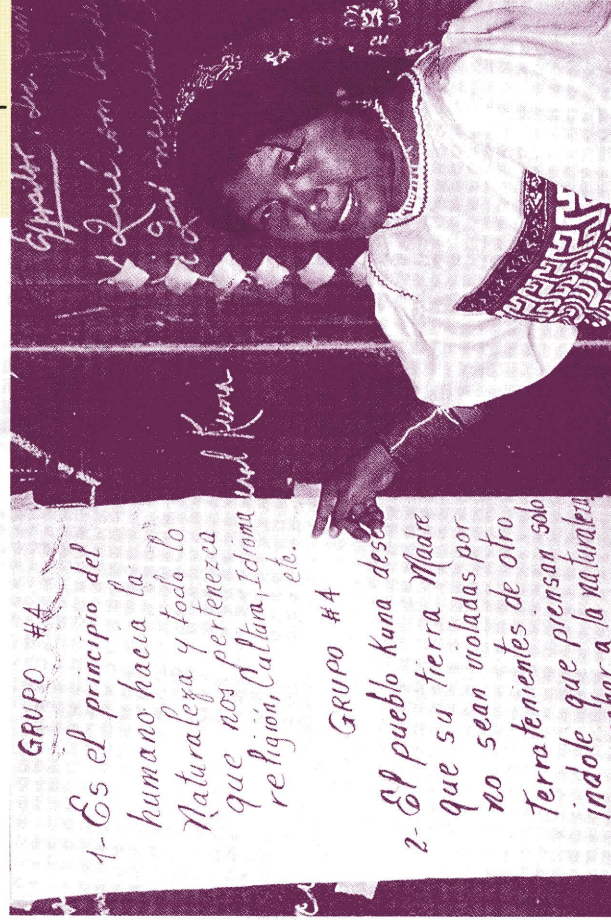 GRUPO #4
1- Es el principio del
humano hacia la
Naturaleza y todo lo
que nos pertenezca
religión, Cultura, Idioma
etc.
GRUPO #4
2- El pueblo Kuna dese
que su tierra Madre
no sean violadas por
Terratenientes de otro
indole que piensan solo
a la naturaleza
Qué son
Kuna